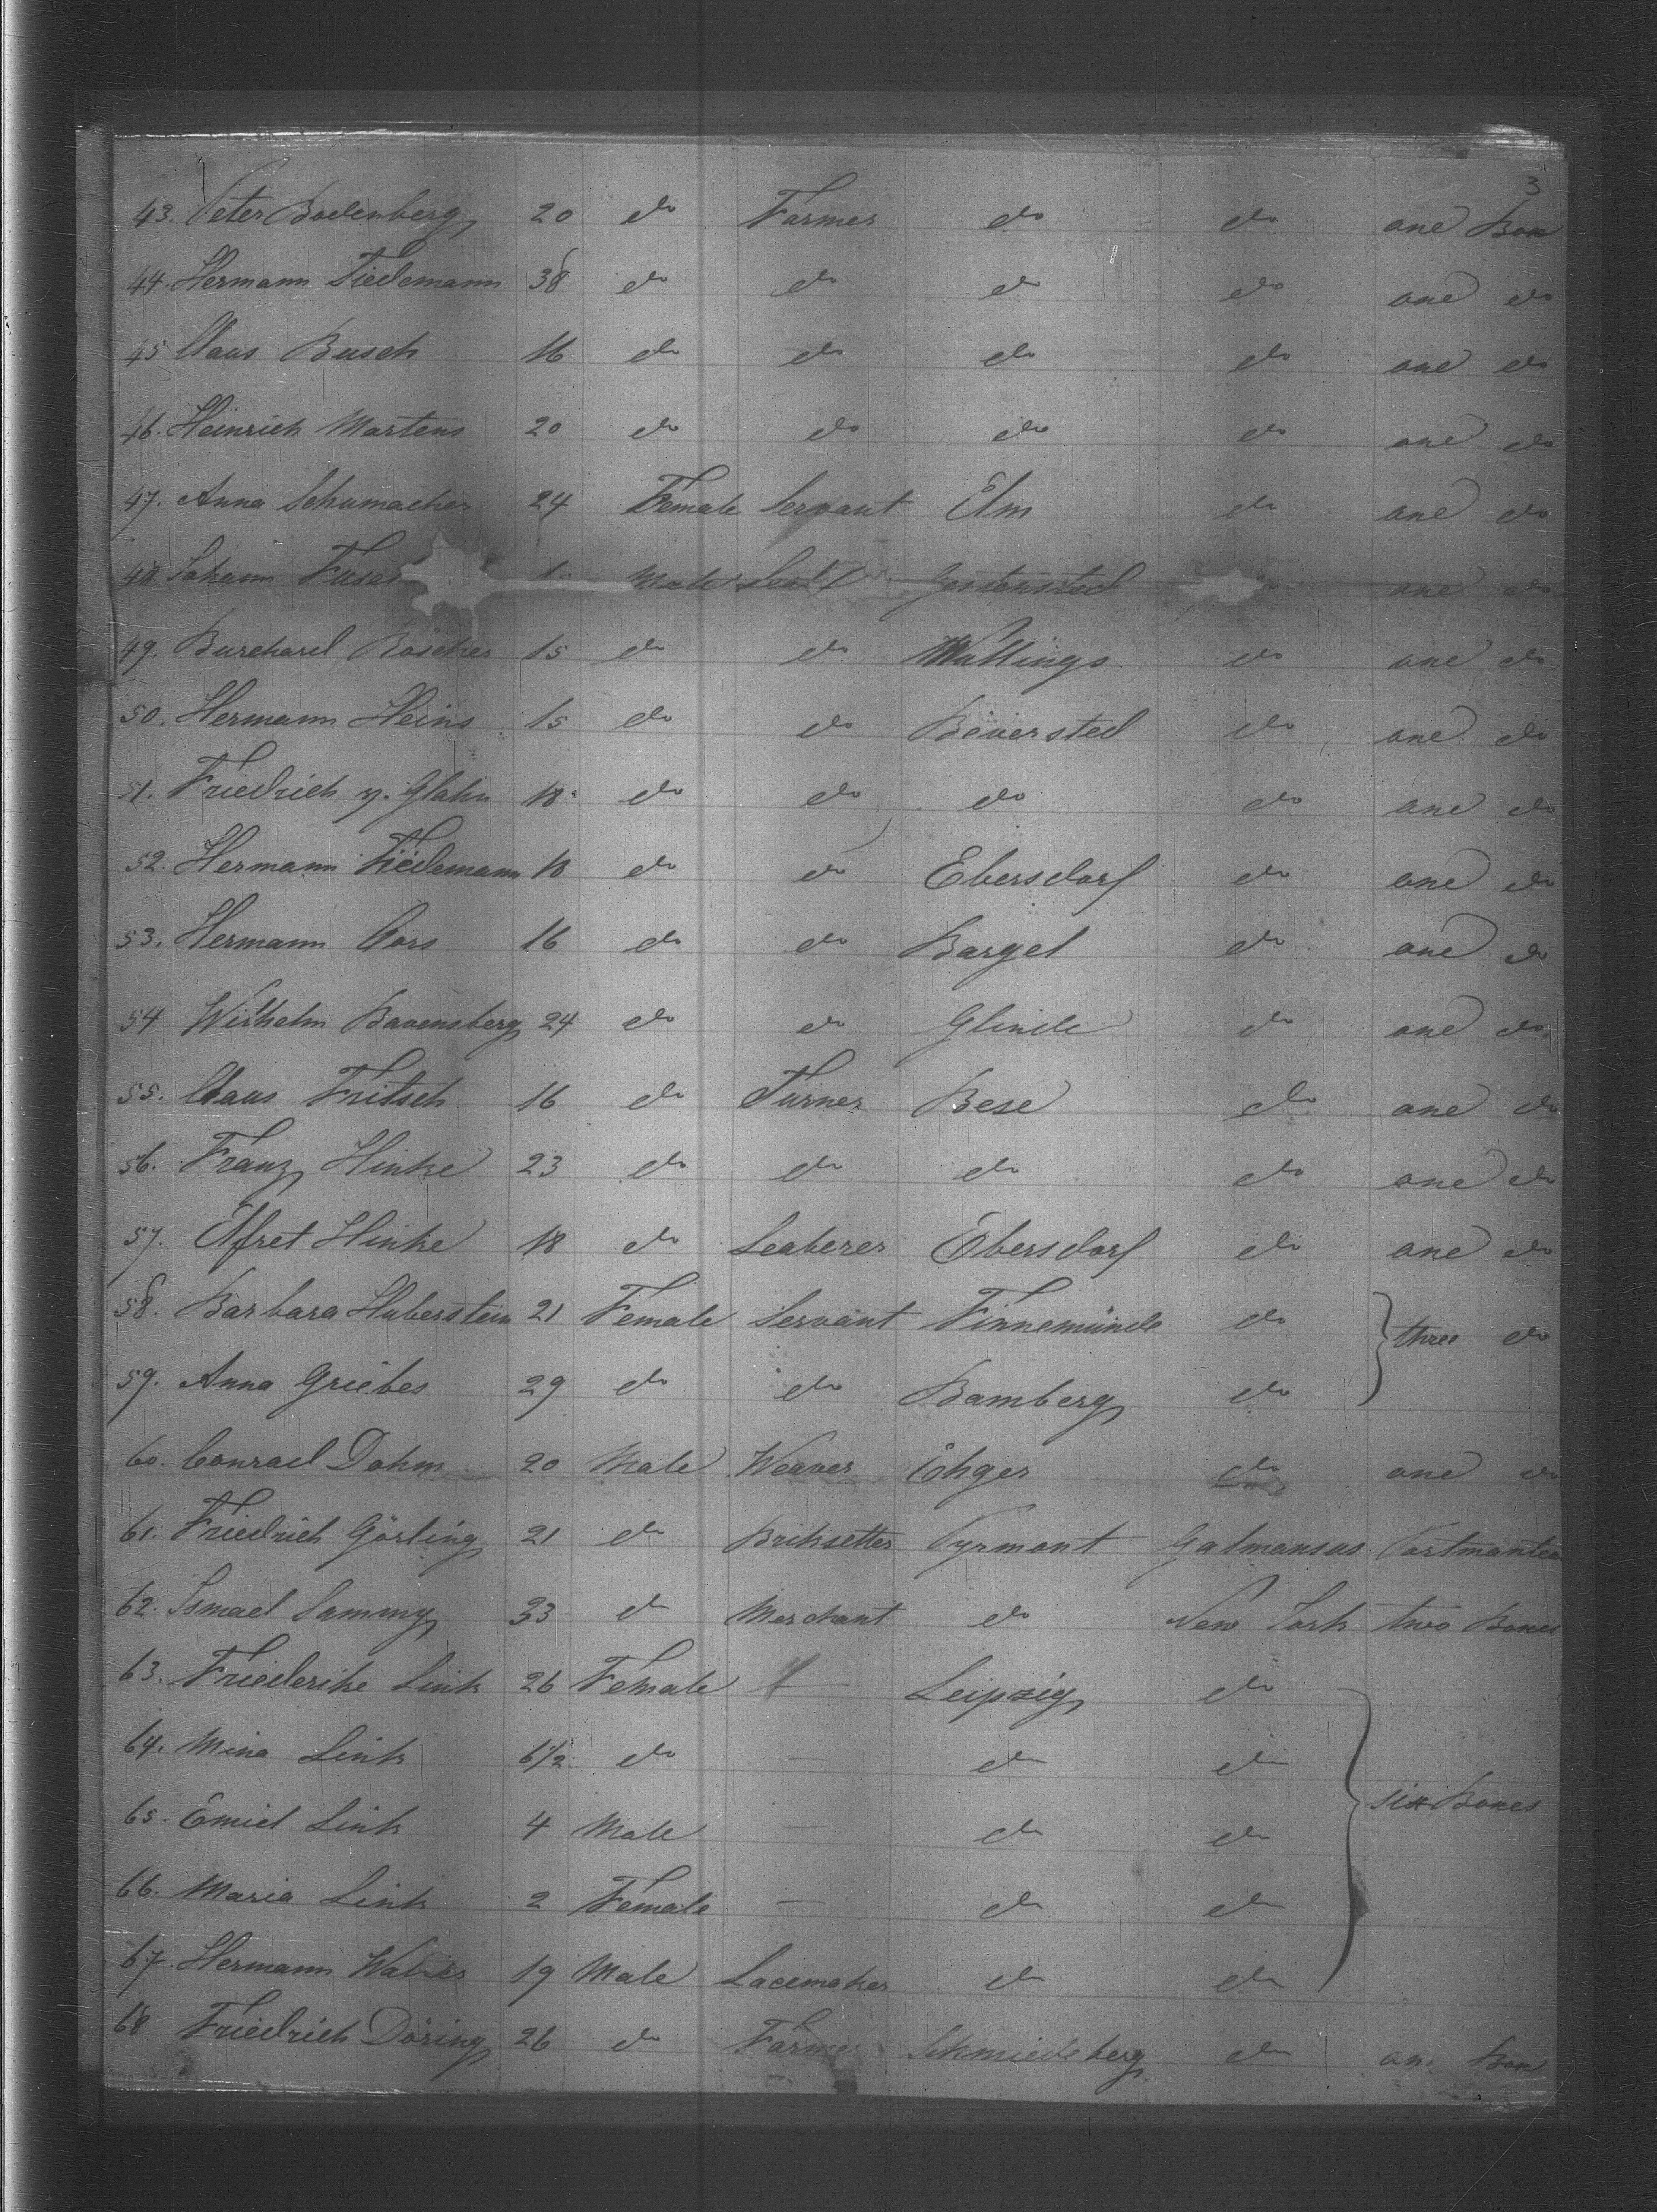 3
43. Peter Bodenberg 20 do Farmer do do one Box
44. Hermann Tiedemann 38 do do do do one do
45 Claus Busch 16 do do do do one do
46. Heinrich Martens 20 do do do do one do
47. Anna Schumacher 24 Female Servant Elm do one do
48. Johann Male one do
49. Burchard Röscher 15 do do Wallings do one do
50. Hermann Heins 15 do do Beversted do one do
51. Friedrich v. Glahn 18 do do do do one do
52. Hermann Tiedemann 18 do do Ebersdorf do one do
53. Hermann Cors 16 do do Bargel do one do
54 Wilhelm Bavensberg 24 do do Glinde do one do
55. Claus Fritsch 16 do Turner Bese do one do
56. Franz Hinke 23 do do do do one do
57. Alfret Hinke 18 do Leaberer Ebersdorf do one do
58. Barbara Huberstein 21 Female Servant Finnemünde do
three do
59. Anna Griebes 29 do do Bamberg do
60. Conrad Dohm 20 Male Weaver Ohger do one do
61. Friedrich Görling 21 do Briksetter Pyrmont Galmansus Portmanteau
62. Ismael Sammy 33 do Merchant do New York two Boxes
63. Friederike Link 26 Female — Leipzig do
64. Mina Link 6 1/2 do — do do
six Boxes
65. Emiel Link 4 Male — do do
66. Maria Link 2 Female — do do
67. Hermann 19 Male Lacemaker do do
68 Friedrich Döring 26 do Farmer Schmiedeberg do on Box